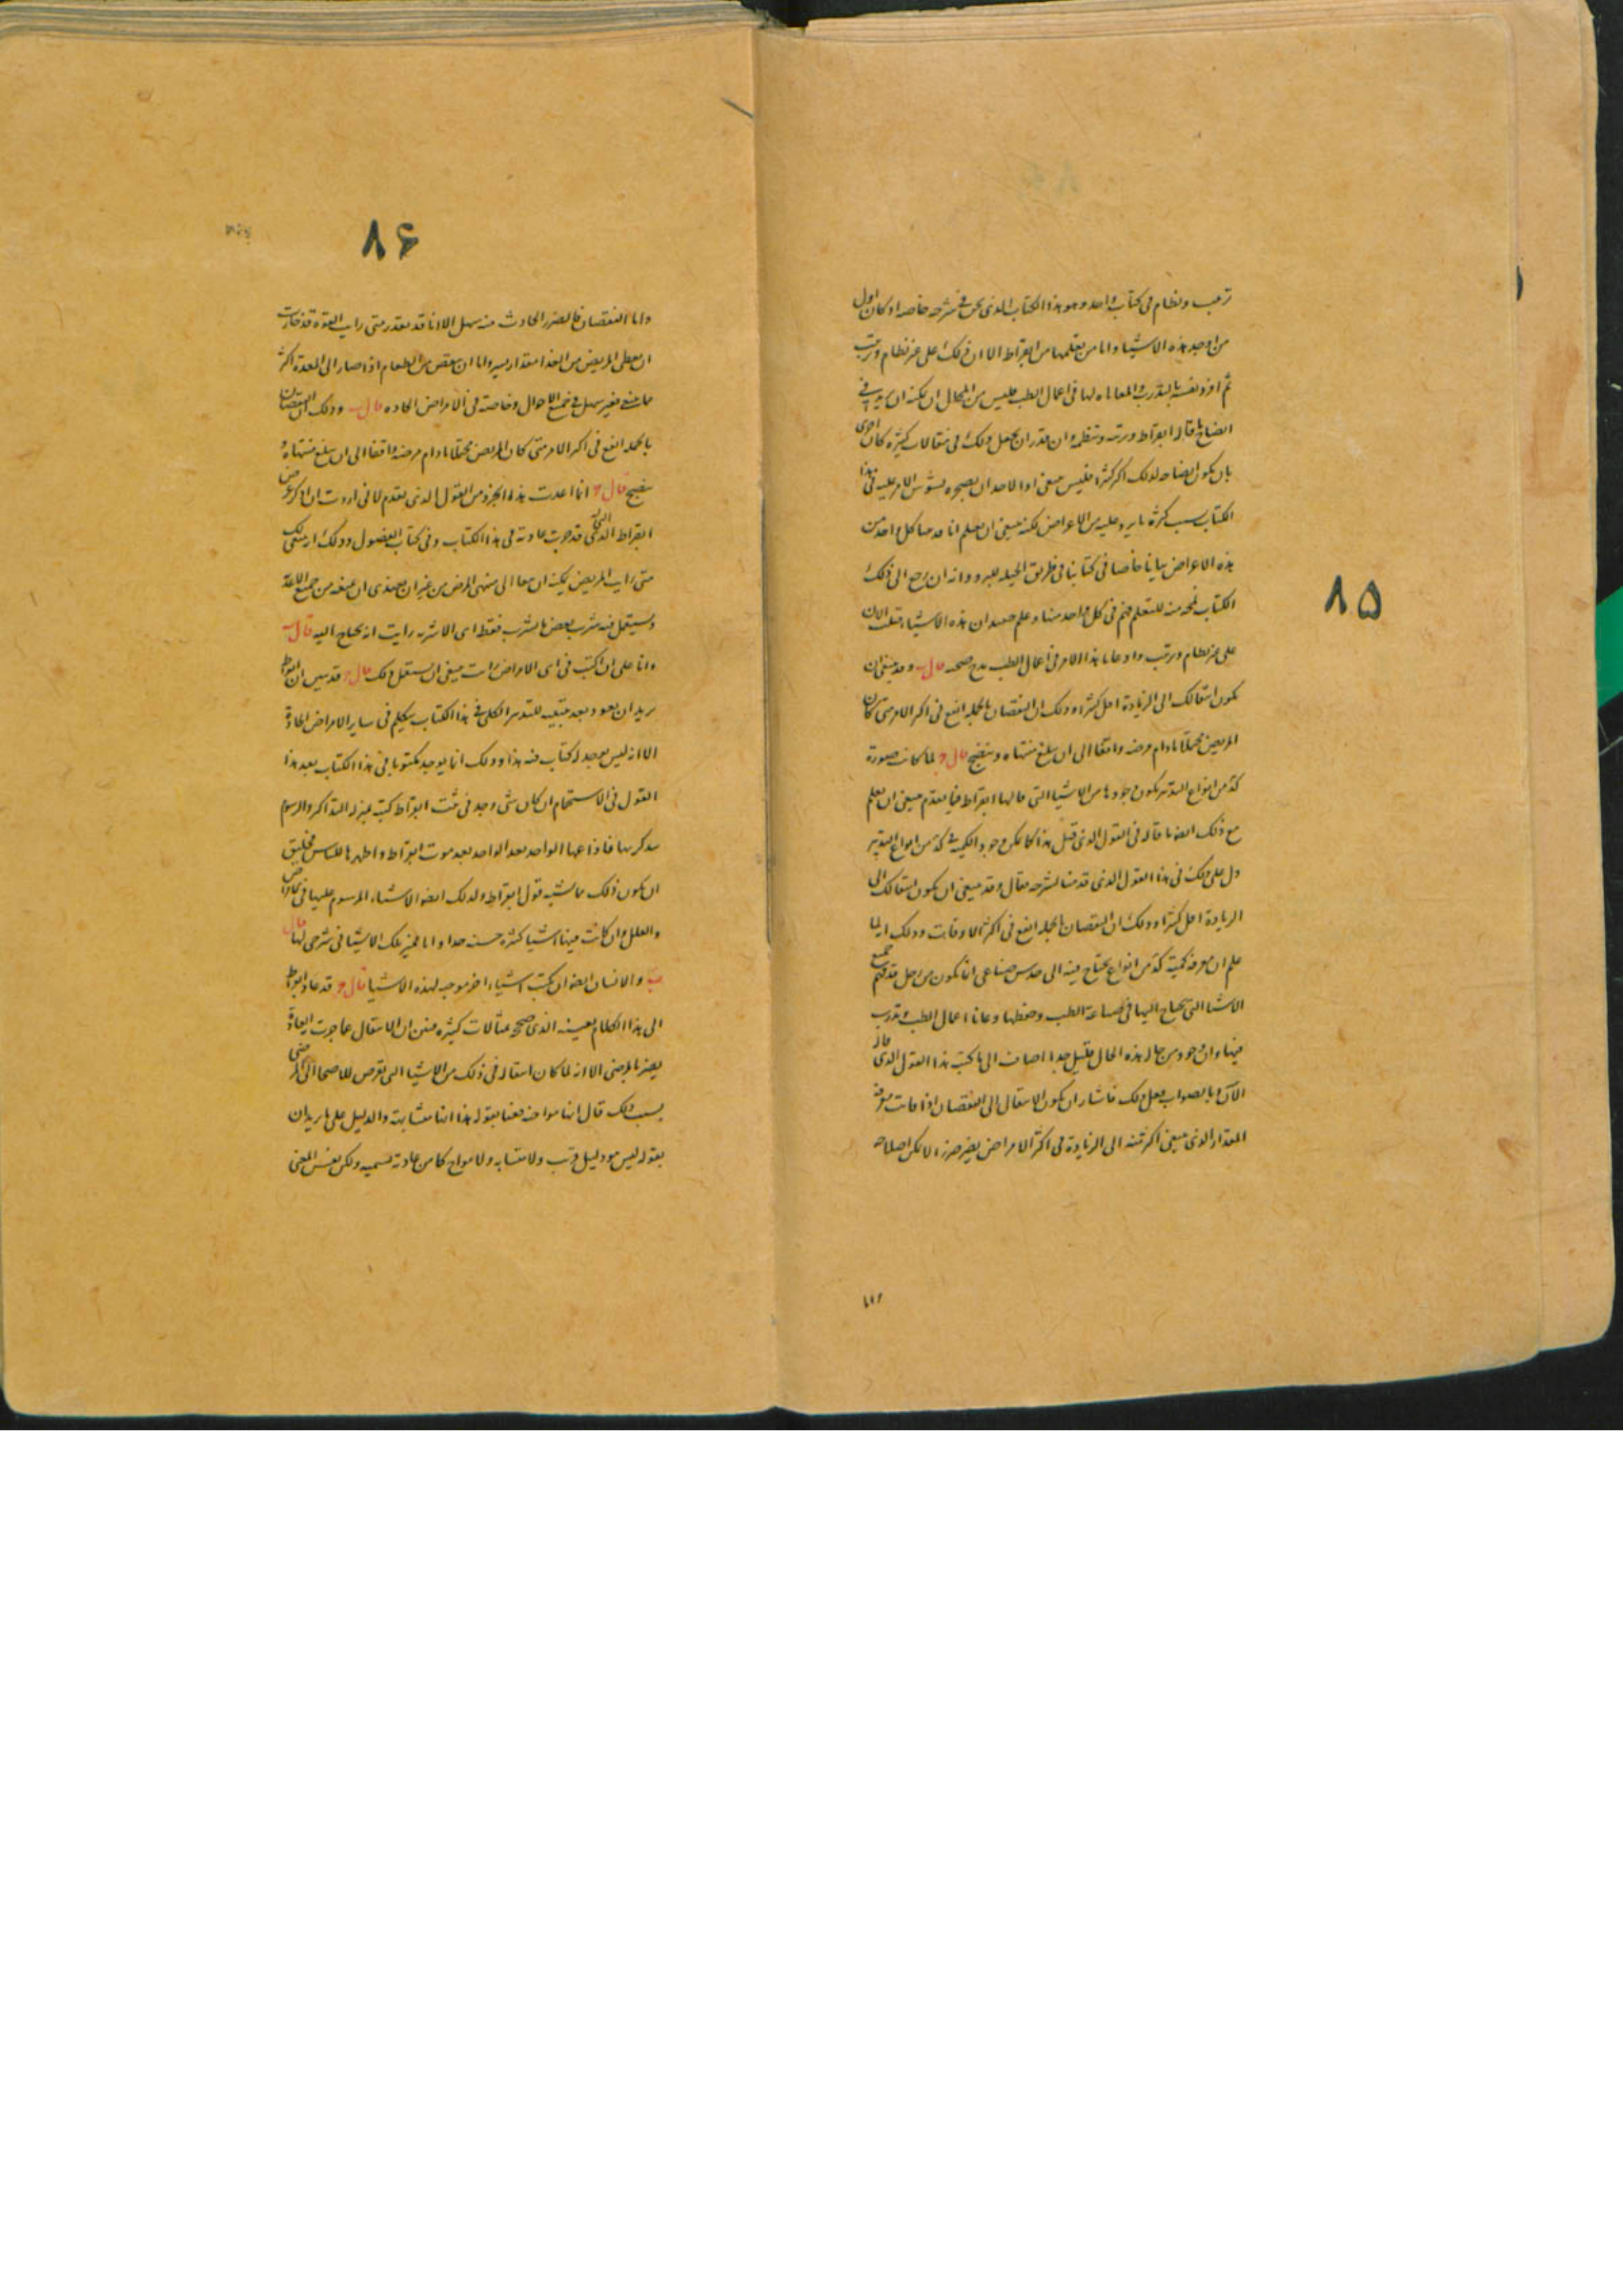 ترتيب ونظام في كتاب واحد وهو هذا الكتاب الذي نحن في شرحه خاصه اذ كان اول
من اوجد هذه الاشيا واما من تعلمها من ابقراط الا ان ذلك على غير نظام وترتيب
ثم افرد نفسه بالتدرب والمعاناه لها في اعمال الطب فليس من المحال ان يمكنه ان يزيد في
ايضاح ما قاله ابقراط ويرتبه وينظمه وان قدر ان يجعل ذلك في مقالات كثيره كان احرى
بان يكون ايضاحه لذلك اكثر كثيرا فليس ينبغي اذا لاحد ان يضجر ويتشوش الامر عليه في هذا
الكتاب بسبب كثرة ما يرد عليه من الاعراض لكنه ينبغي ان يعلم انا قد بينا كل واحد من
هذه الاعراض بيانا خاصا في كتابنا في طريق الحيله للبرو وانه ان رجع الى ذلك
الكتاب
على غير نظام وترتيب واذ عانا هذا الامر في اعمال الطب صحه قال ب وقد ينبغي ان
يكون انتقالك الى الزيادة اقل كثيرا وذلك ان النقصان بالجمله انفع في اكثر الامر متى كان
المريض محتملا ما دام مرضه واقفا الى ان يبلغ منتهاه وينضج قال ج لما كانت صورة
كثير من انواع التدبير يكون وجودها من الاشيا التي قالها ابقراط فيما تقدم ينبغي ان تعلم
مع ذلك ايضا ما قاله في القول الذي قبل هذا كما يكن وجود الكميه في كثير من انواع التدبير
دل على ذلك في هذا القول الذي قدمنا لشرحه فقال وقد ينبغي ان يكون انتقالك الى
الزيادة اقل كثيرا وذلك ان النقصان بالجمله انفع في اكثر الاوقات وذلك انه لما
علم ان معرفة كمية كثير من انواع يحتاج فيه الى حدس صناعي انما يكون من رجل قد فهم جميع
الاشيا التي يحتاج اليها في صناعة الطب وحفظها وعانا اعمال الطب وتدرب
فيها وان وجود من حاله هذه الحال قليل جدا اضاف الى ما كتب هذا القول الذي قاله
الآن وبالصواب فعل ذلك فاشار ان يكون الانتقال الى النقصان اذا فاتت معرفة
المقدار الذي ينبغي اكثر منه الى الزيادة في اكثر الامراض يضر ضررا لا يمكن اصلاحه
واما
٨٥
٨۶
واما النقصان فالضرر الحادث منه سهل الا انا قد نقدر متى راينا القوة قد خارت
ان نعطي المريض من الغذا مقدار يسير واما ان ينقص من الطعام اذا صار الى المعدة اكثر
ما ينبغي فغير سهل في جميع الاحوال وخاصته في الامراض الحاده قال ب وذلك ان النقصان
بالجمله انفع في اكثر الامر متى كان المريض محتملا ما دام مرضه واقفا الى ان يبلغ منتهاه
ينضج قال ج انما اعدت هذه الجزو من القول الذي تقدم لاني اردت ان اذكر غرض
ابقراط الذي قد جرت عادته في هذا الكتاب وفي كتاب الفصول وذلك انه
متى راى المريض يمكنه ان يبقا الى منتهى المرض من غير ان يغتذى ان يمنعه من جميع الاغذية
ويستعمل فيه شرب بعض ما يشرب فقط اى الاشربه رايت انه يحتاج اليه قال ب
وانا على ان اكتب في اى الامراض رايت ينبغي ان يستعمل ذلك قال ج قد تبين ان ابقراط
يريد ان يعود بعد تتميمه للتدبير الكلي في هذا الكتاب يتكلم في ساير الامراض الحادة
الا انه ليس يوجد له كتاب فيه هذا وذلك انما يوجد مكتوبا في هذا الكتاب بعد هذا
القول في الاستحمام ان كان شي وجد في بيت ابقراط كتب بمنزلة التذاكر والرسوم
يتذكر بها فاذاعها الواحد بعد الواحد بعد موت ابقراط واظهرها للناس فخليق
ان يكون ذلك ما يشبه قول ابقراط ولذلك ايضا الاشياء المرسوم عليها في الامراض
والعلل وان كانت فيها اشيا كثيره حسنه جدا وانا مميز تلك الاشيا في شرحي لها قال
ب والانسان ايضا ان يكتب اشياء اخر موجبه لهذه الاشيا قال ج قد عاد ابقراط
الى هذا الكلام بعينه الذي صح بمقالات كثيره فبين ان الانتقال عما جرت العادة
يضر بالمرضى الا انه لما كان انتقاله في ذلك من الاشيا التي تعرض للاصحا الى المرضى
بسبب ذلك قال انها موافقه فعنا بقوله هذا انها مشابهة والدليل على ما يريد ان
بقوله ليس هو دليل قريب ولا مشابه ولا مواخ كما من عادته تسميه ولكن نفس المعنى